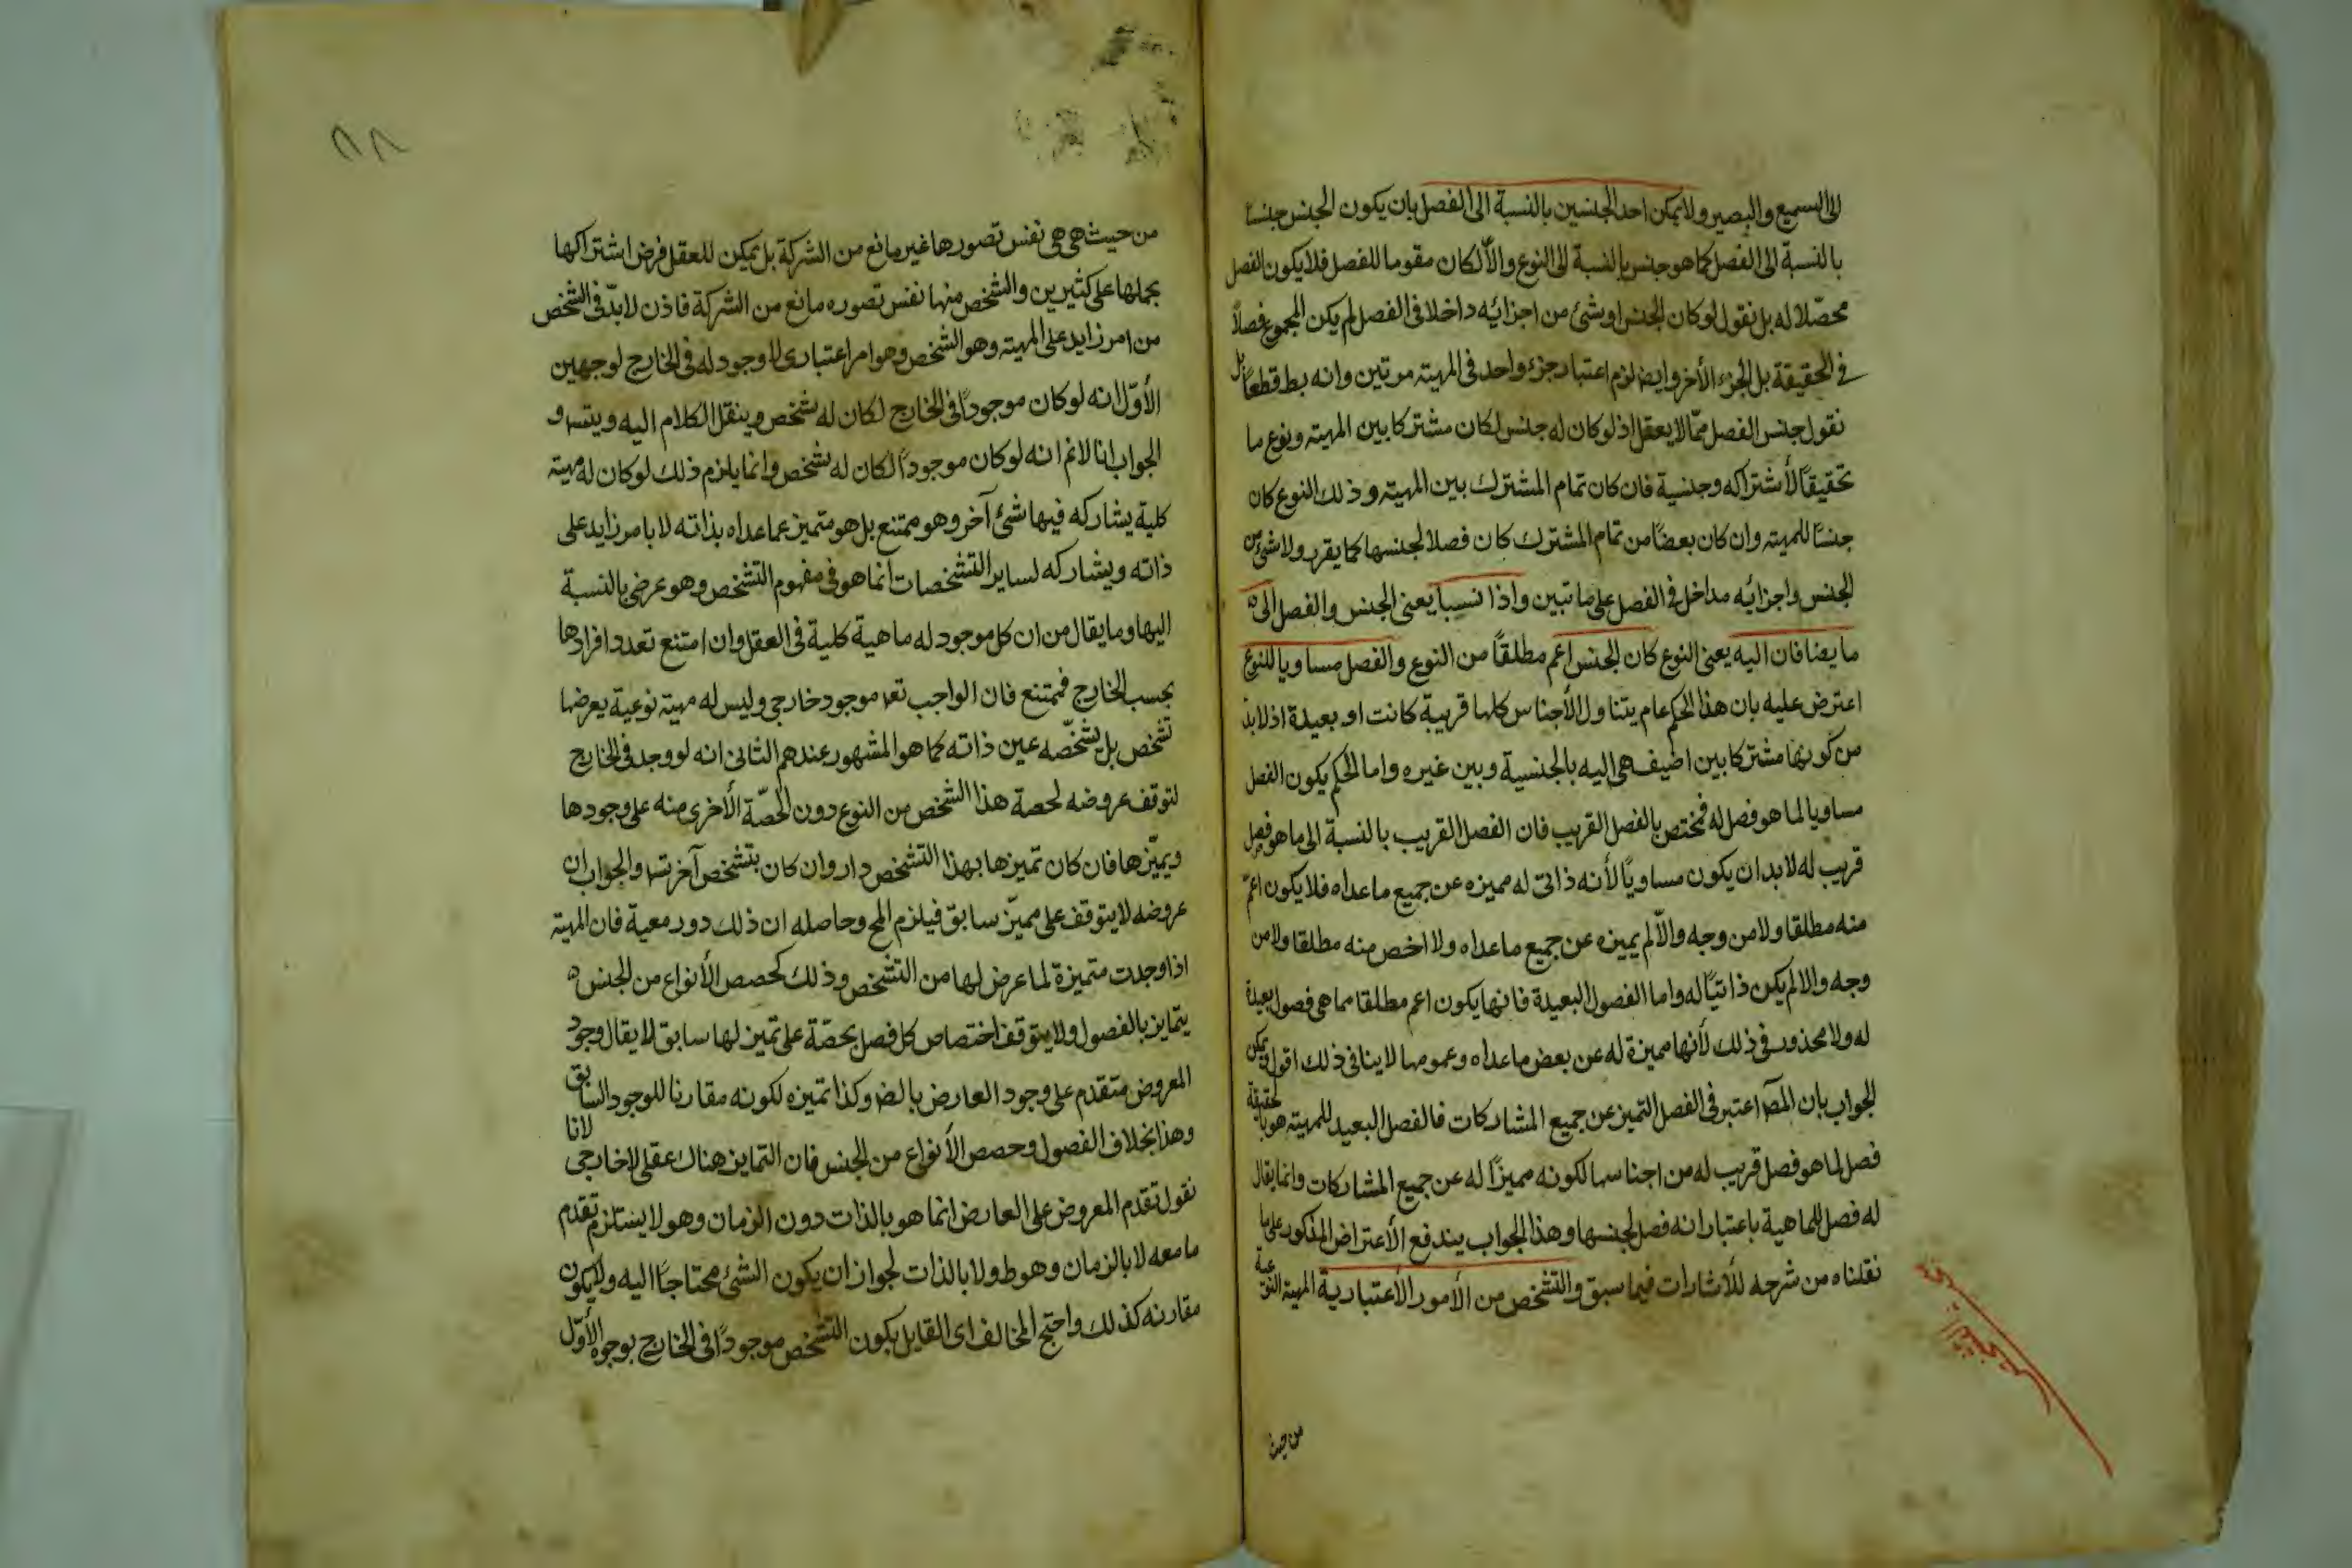 الى السميع والبصير ولا يمكن احد الجنسين بالنسبة الى الفصل بان يكون الجنس جنسا
بالنسبة الى الفصل كما هو جنس بالنسبة الى النوع والّا لكان مقوما للفصل فلا يكون الفصل
محصّلا له بل نقول لو كان الجنس او شئ من اجزائه داخلا فى الفصل لم يكن المجموع فصلاً
فى الحقيقة بل الجزء الأخر وايضا لزم اعتبار جزء واحد فى المهية مرتين وانه بط قطعاً بل
نقول جنس الفصل ممّا لا يعقل اذ لو كان له جنس لكان مشتركا بين المهية ونوع ما
تحقيقاً لأشتراكه وجنسية فان كان تمام المشترك بين المهية وذلك النوع كان
جنسًا للمهية وان كان بعضًا من تمام المشترك كان فصلا لجنسها كما يقرر ولا شئ من
الجنس واجزائه مداخل فى الفصل على ما تبين واذا نسبا يعنى الجنس والفصل الى
ما يضافان اليه يعنى النوع كان الجنس اعم مطلقًا من النوع والفصل مساويا للنوع
اعترض عليه بان هذا الحكم عام يتناول الأجناس كلها قريبة كانت او بعيدة اذ لا بد
من كونها مشتركا بين اضيف هى اليه بالجنسية وبين غيره واما الحكم يكون الفصل
مساويا لما هو فصل له فمختص بالفصل القريب فان الفصل القريب بالنسبة الى ما هو فصل
قريب له لا بد ان يكون مساويًا لأنه ذاتى له مميزه عن جميع ما عداه فلا يكون اعمّ
منه مطلقا ولا من وجه والّا لم يميزه عن جميع ما عداه ولا اخص منه مطلقا ولا من
وجه والا لم يكن ذاتيًا له واما الفصول البعيدة فانها يكون اعم مطلقا مما هى فصول بعيدة
له ولا محذور فى ذلك لأنها مميزة له عن بعض ما عداه وعمومها لا ينافى ذلك اقول يمكن
الجواب بان المص اعتبر فى الفصل التميز عن جميع المشاركات فالفصل البعيد للمهية هو بالحقيقة
فصل لما هو فصل قريب له من اجناسها لكونه مميزًا له عن جميع المشاركات وانما يقال
له فصل للماهية باعتبار انه فصل لجنسها وهذا الجواب يندفع الأعتراض المذكور على ما
نقلناه من شرحه للأشارات فيما سبق والتشخص من الأمور الأعتبارية المهية النوعية
من حيث
من حيث هى هى نفس تصورها غير مانع من الشركة بل يمكن للعقل فرض اشتراكها
بحملها على كثيرين والشخص منها نفس تصوره مانع من الشركة فاذن لا بدّ فى الشخص
من امر زايد على المهية وهو الشخص وهو امر اعتبارى لا وجود له فى الخارج لوجهين
الأوّل انه لو كان موجودًا فى الخارج لكان له تشخص وينقل الكلام اليه ويتسـ و
الجواب انا لا نم انه لو كان موجودًا لكان له تشخص وانما يلزم ذلك لو كان له مهية
كلية يشاركه فيها شئ آخر وهو ممتنع بل هو متميز عما عداه بذاته لا بامر زايد على
ذاته ويشاركه لساير التشخصات انما هو فى مفهوم التشخص وهو عرضى بالنسبة
اليها وما يقال من ان كل موجود له ماهية كلية فى العقل وان امتنع تعدد افرادها
بحسب الخارج فممتنع فان الواجب تعـ موجود خارجى وليس له مهية نوعية يعرضها
تشخص بل تشخّصه عين ذاته كما هو المشهور عندهم الثانى انه لو وجد فى الخارج
لتوقف عروضه لحصة هذا الشخص من النوع دون الحصّة الأخرى منه على وجودها
ويميّزها فان كان تميزها بهذا التشخص دار وان كان بتشخص آخر تسـ والجواب ان
عروضه لا يتوقف على مميّز سابق فيلزم المح وحاصله ان ذلك دور معية فان المهية
اذا وجدت متميزة لما عرض لها من التشخص وذلك كحصص الأنواع من الجنس
يتمايز بالفصول ولا يتوقف اختصاص كل فصل بحصّة على تميز لها سابق لا يقال وجود
المعروض متقدم على وجود العارض بالضـ وكذا تميزه لكونه مقارنا للوجود السابق
وهذا بخلاف الفصول وحصص الأنواع من الجنس فان التمايز هناك عقلى لا خارجى لانا
نقول تقدم المعروض على العارض انما هو بالذات دون الزمان وهو لا يستلزم تقدم
ما معه لا بالزمان وهو ط ولا بالذات لجواز ان يكون الشئ محتاجًا اليه ولا يكون
مقارنه كذلك واحتج المخالف اى القايل بكون التشخص موجودًا فى الخارج بوجوه الأوّل